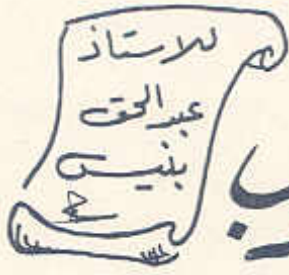 للاستاذ
عبد الحق
بنيس